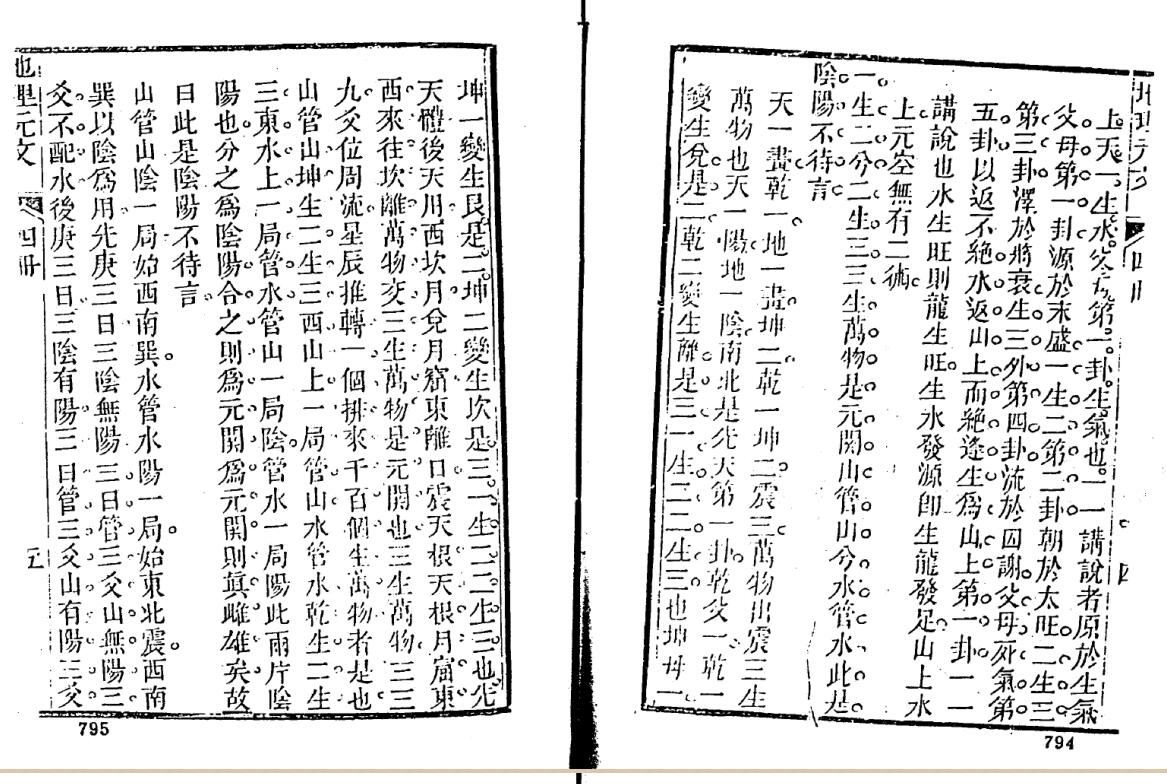 上天一生水爻為第一卦生氣也一一講說者原於生氣
父母第一卦源於末盛一生二第二卦朝於太旺二生三
第三卦澤於將衰生三外第四卦流於囚謝父母死氣第
五卦以返不絕水返山上而絕逢生為山上第一卦一一
講說也水生旺則龍生旺生水發源即生龍發足山上水
上元空無有二術
一生二兮二生三三生萬物是元關山管山兮水管水此是
陰陽不待言
天一畫乾一地一畫坤二乾一坤二震三萬物出震三生
萬物也天一陽地一陰南北是先天第一卦乾父一乾一
變生兌是二乾二變生離是三一生二二生三也坤母一
794
坤一變生艮是二坤二變生坎是三一生二二生三也先
天體後天用西坎月兌月窟東離日震天根天根月窟東
西來往坎離萬物交三生萬物是元關也三生萬物三三
九爻位周流星辰推轉一個排來千百個生萬物者是也
山管山坤生二生三西山上一局管山水管水乾生二生
三東水上一局管水管山一局陰管水一局陽此兩片陰
陽也分之為陰陽合之則為元關為元關則真雌雄矣故
曰此是陰陽不待言
山管山陰一局始西南巽水管水陽一局始東北震西南
巽以陰為用先庚三日三陰無陽三日管三爻山無陽三
爻不配水後庚三日三陰有陽三日管三爻山有陽三爻
地理元文
四冊
795